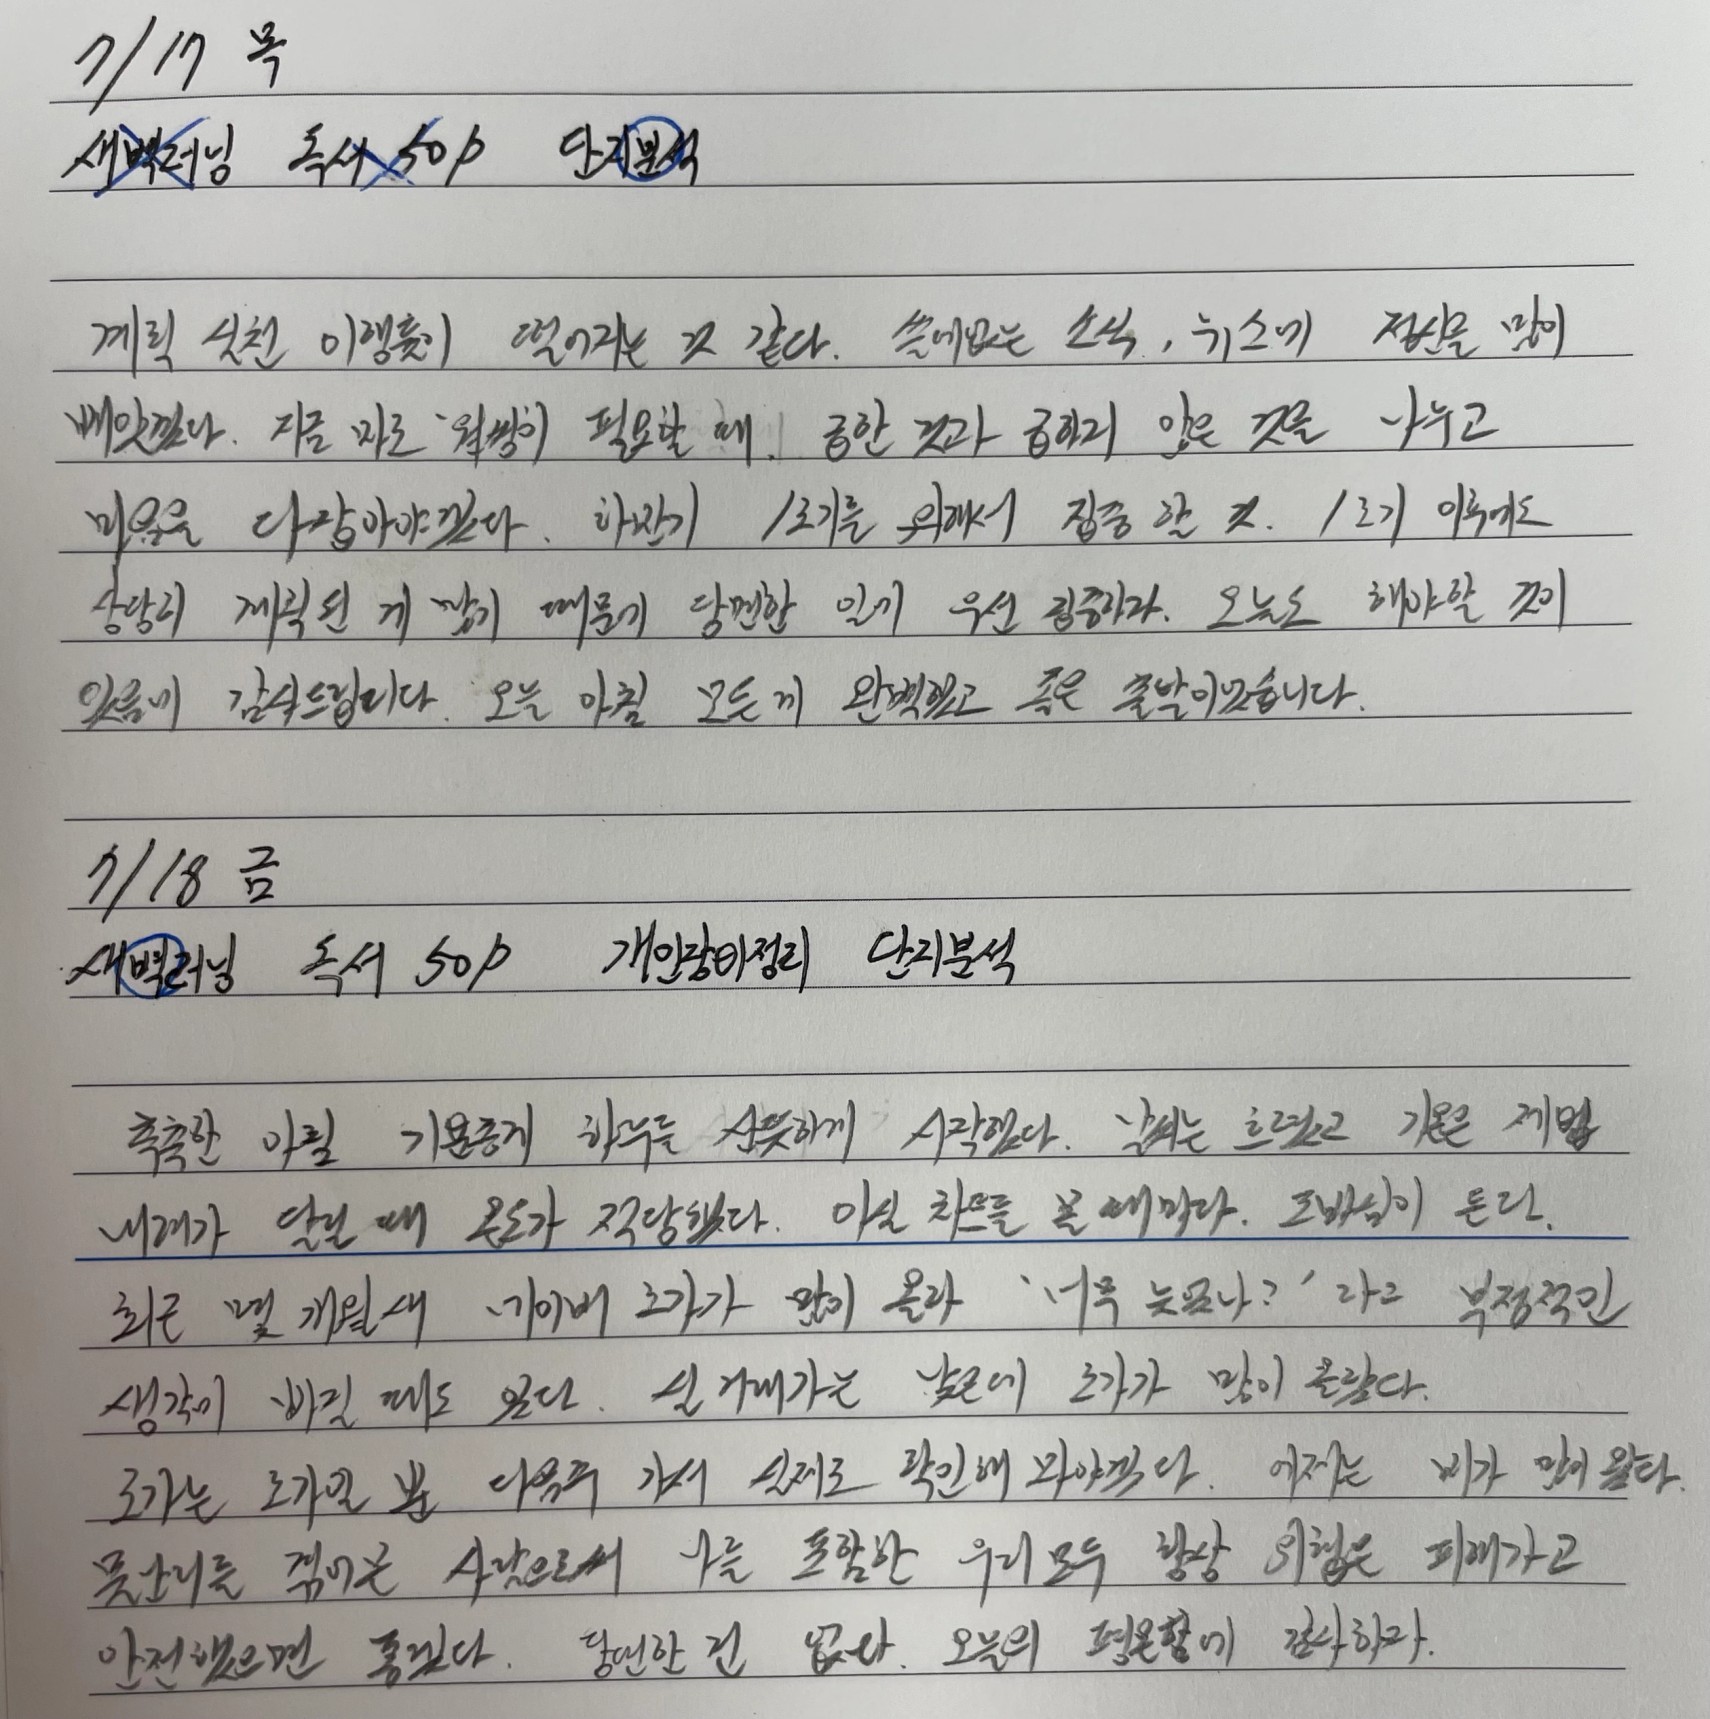 7/17 목
새벽러닝 독서 50p 단지분석
계획 실천 이행률이 떨어지는 것 같다. 쓸데없는 소식, 뉴스에 정신을 많이
빼앗겼다. 지금 바로 필요할 때. 급한 것과 급하지 않은 것을 나누고
마음을 다잡아야겠다. 하반기 1호기를 위해서 집중 할 것. 1호기 이후에도
상당히 계획된 게 많기 때문에 당면한 일에 우선 집중하자. 오늘도 해야할 것이
있음에 감사드립니다. 오늘 아침 모든게 완벽했고 좋은 출발이었습니다.
7/18 금
새벽러닝 독서 50p 개인장비정리 단지분석
축축한 아침 기분좋게 하루를 산뜻하게 시작했다. 날씨는 흐렸고 기온은 제법
내려가 달릴 때 온도가 적당했다. 아실 차트를 볼 때마다. 조바심이 든다.
최근 몇 개월새 네이버 호가가 많이 올라 '너무 늦었나?' 라고 부정적인
생각이 빠질 때도 있다. 실거래가는 낮은데 호가가 많이 올랐다.
호가는 호가일 뿐 다음주 가서 실제로 확인해 봐야겠다. 어제는 비가 많이 왔다.
물난리를 겪어본 사람으로서 나를 포함한 우리 모두 항상 위험은 피해가고
안전했으면 좋겠다. 당연한 건 없다. 오늘의 평온함에 감사하자.